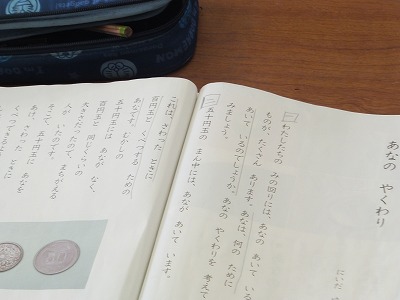 あなの やくわり
にいだ
一
わたしたちの みの回りには、あなの あいて いる
ものが、たくさん あります。あなは、何の ために
あいて いるのでしょうか。あなの やくわりを 考えて
みましょう。
二
五十円玉の まん中には、あなが あいて います。
これは、さわった ときに
百円玉と くべつする ための
あなです。むかしの
五十円玉には あなが なく、
百円玉と 同じくらいの
大きさだったので、まちがえる
人が いたのです。
そこで、五十円玉に あなを
あけ、さわった ときに
くべつできるよう